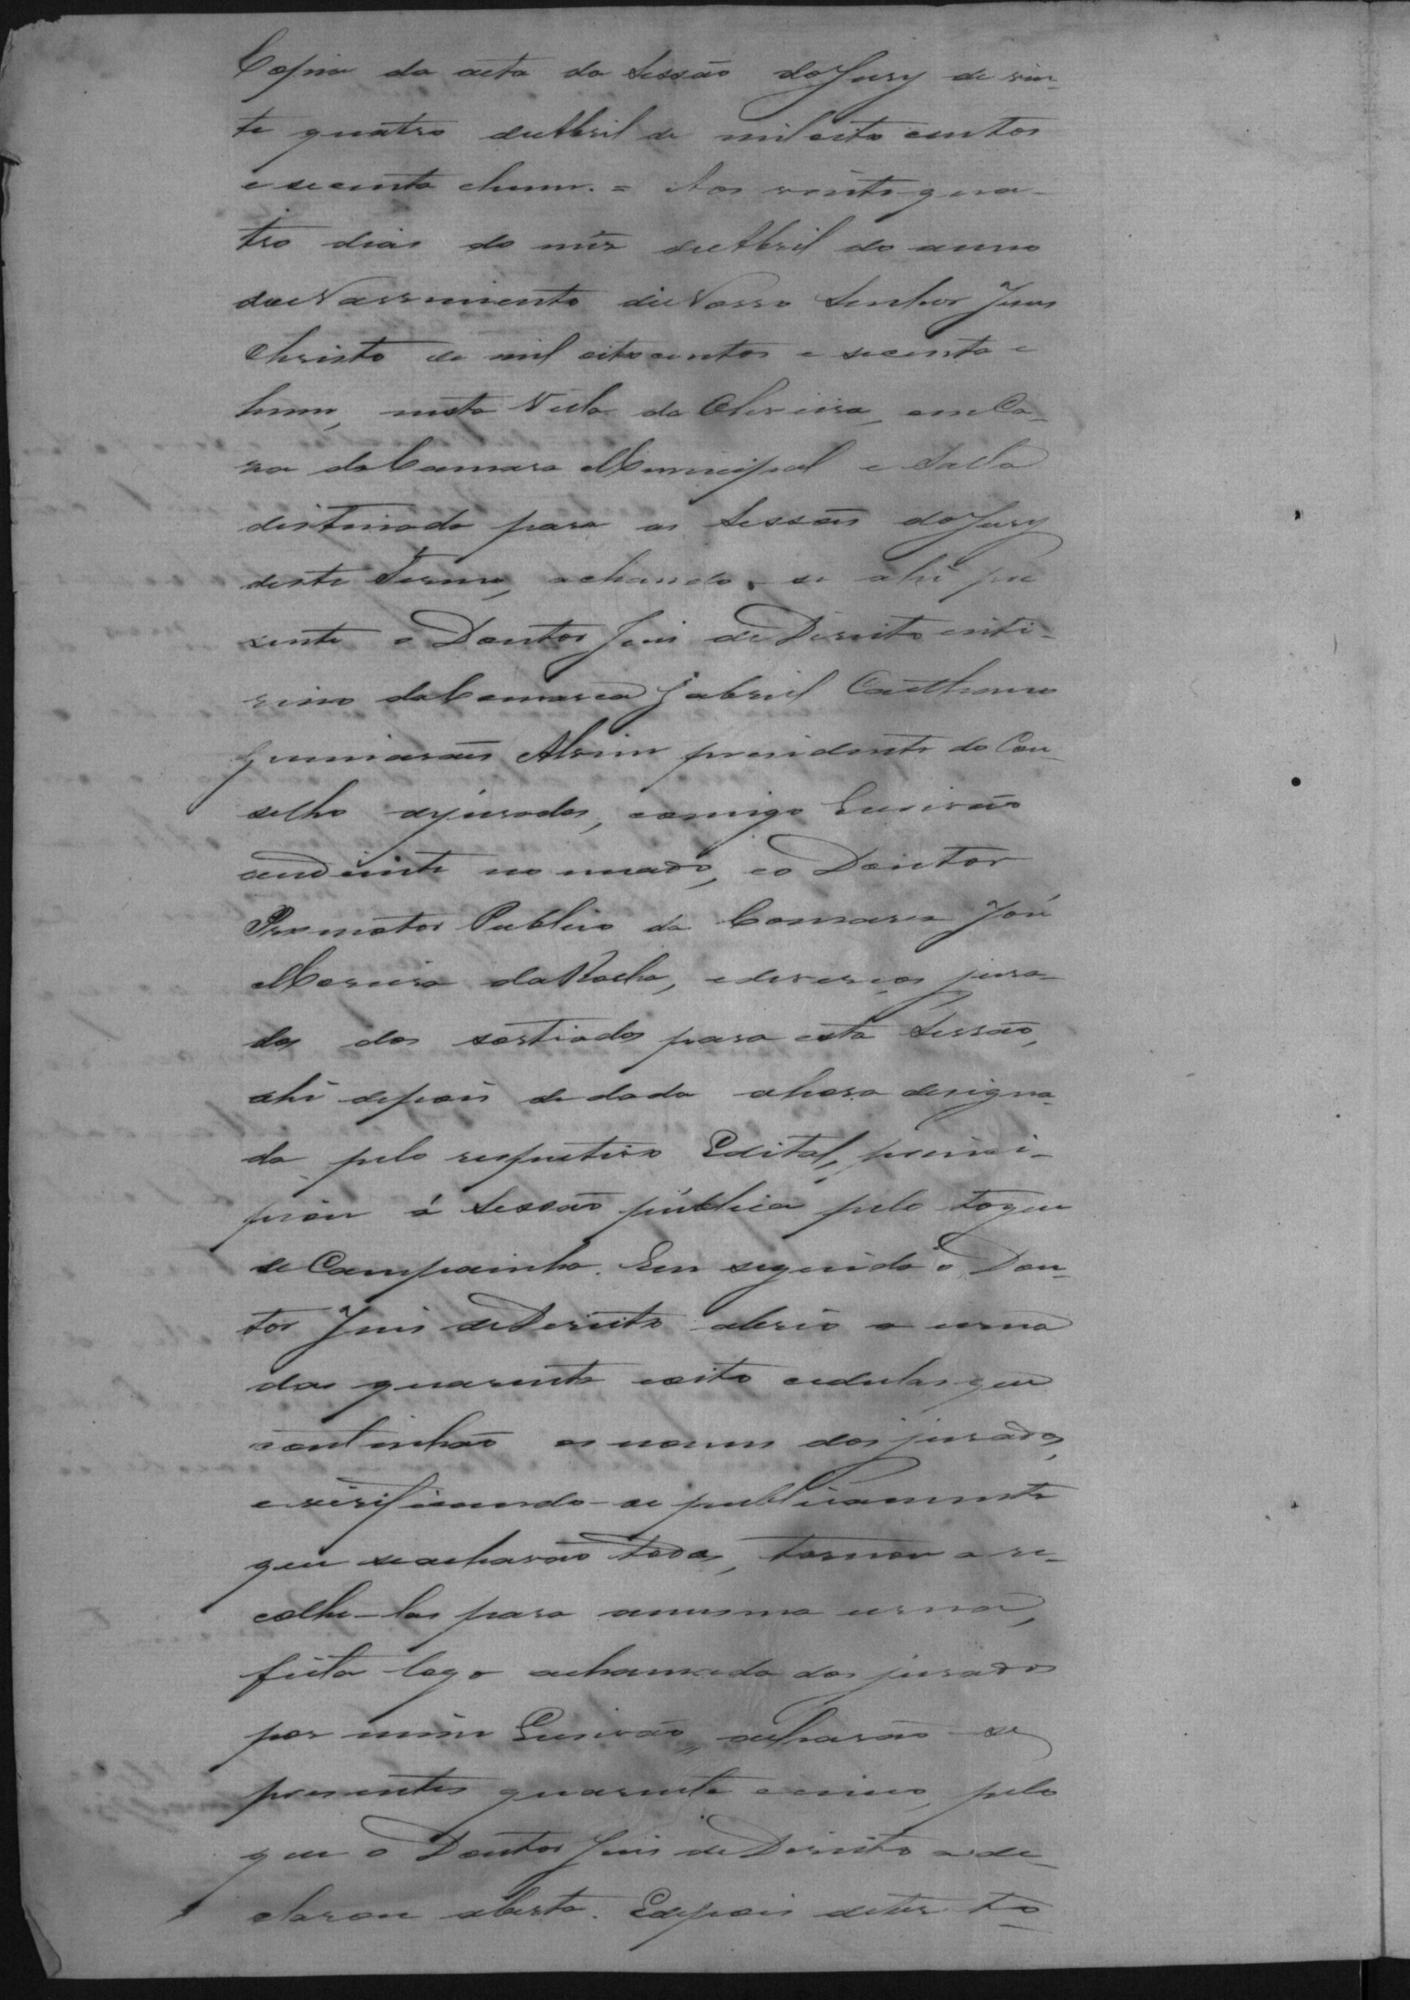 Copia da acta da Sessão do Jury de vin-
te quatro de Abril de mil oito centos
e secenta e hum. = Aos vinte qua-
tro dias do mês de Abril do anno
do Nascimento de Nosso Senhor Jesus
Christo de mil oitocentos e secenta e
hum, nesta Villa da Oliveira, em Ca-
za da Camara Municipal e Salla
distinada para as Sessões do Jury
deste Termo, achando-se ahi pre
zente o Doutor Juis de Direito inte-
rino da Comarca Gabriel Caetano
Guimarães Alvim presidente do Con-
selho de jurados, comigo Escrivão
ao diante no meado, e o Doutor
Promotor Publico da Comarca José
Moreira da Rocha, e diversos jura-
dos dos sortiados para esta Sessão,
ahi depois de dada a hora designa-
da pelo respectivo Edital, princi-
piou á Sessão pública pelo toque
de Campainha. Em seguida o Dou-
tor Juis de Direito abrio a urna
das quarenta e oito cedulas que
continhão os nomes dos jurados,
e verificando-se publicamente
que se acharão todas, tornou a re-
colhe-las para a mesma urna,
feita logo a chamada dos jurados
por mim Escrivão, acharão-se
presentes quarenta e cinco, pelo
que o Doutor Juis de Direito a de-
clarou aberta. E depois de ter to-